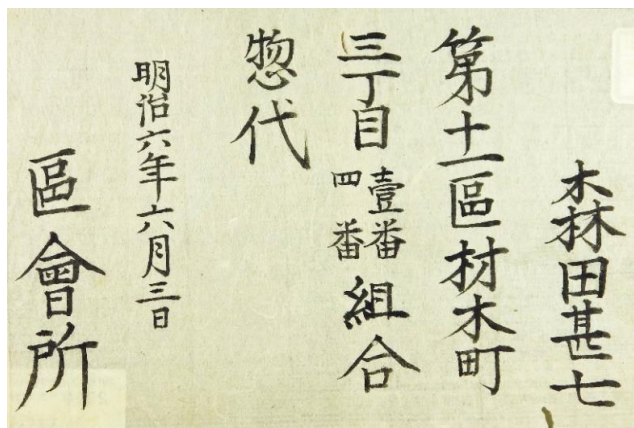 森田甚七
第十一區材木町
三丁目 壹番 四番 組合
惣代
明治六年六月三日
區會所